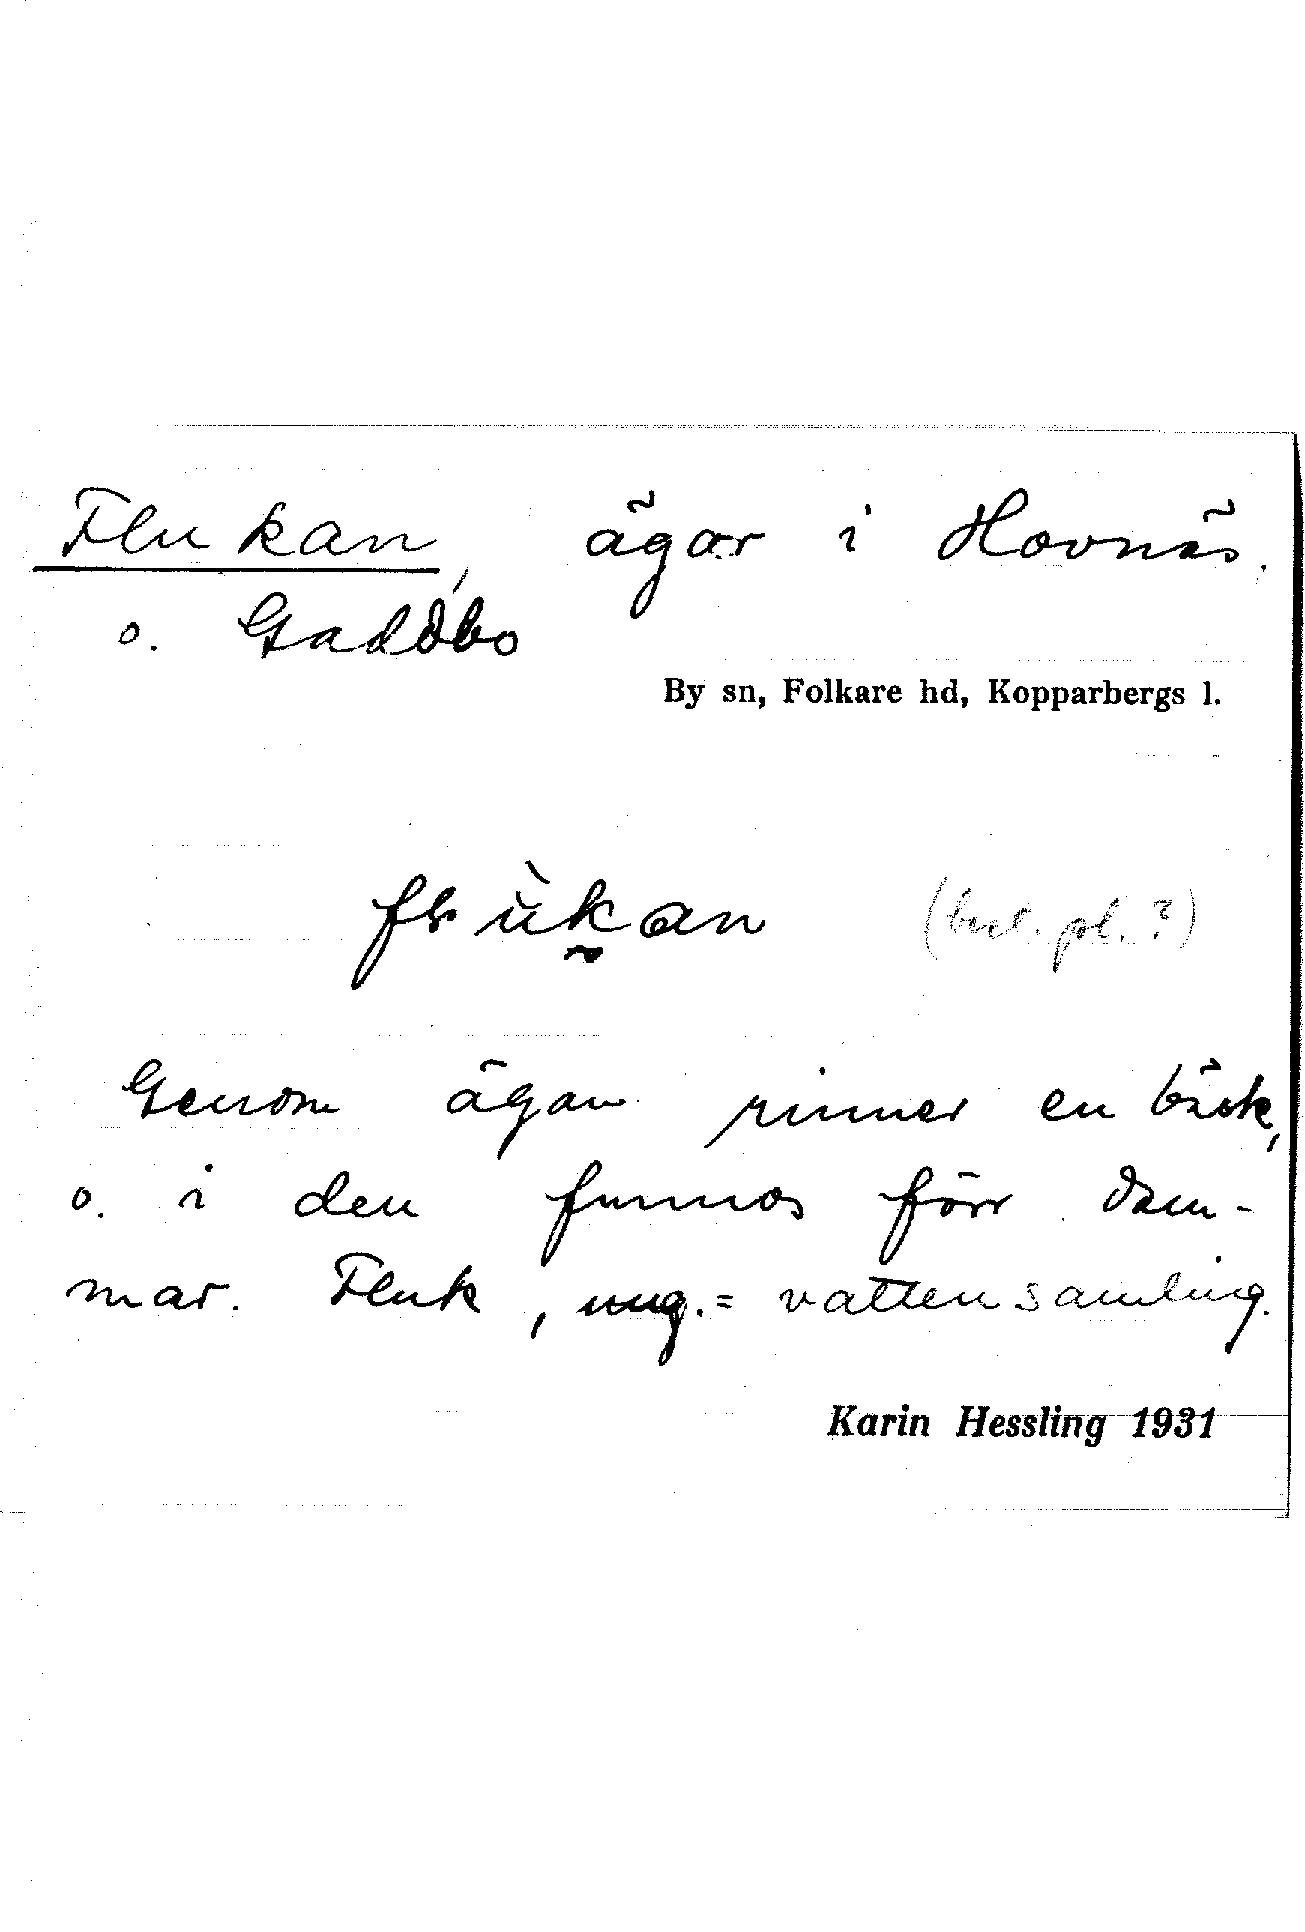 Flukan, ägor i Hovnäs.
o. Gaddbo
By sn, Folkare hd, Kopparbergs l.
flùkan (best. pl.?)
Genom ägan rinner en bäck,
o. i den funnos förr dam-
mar. Fluk, ung.= vattensamling.
Karin Hessling 1931